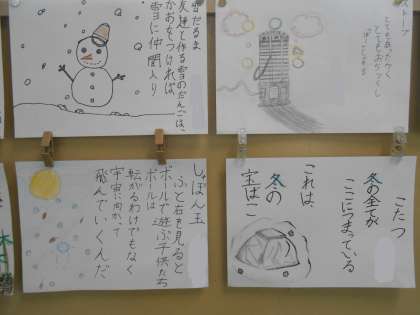 雪だるま
友達と作る雪のだんごは、
かおをつければ、
雪に仲間入り
ストーブ
とてもあったかく
しゃぼん玉
ふと右を見ると
ボールで遊ぶ子供たち
ボールは
転がるわけでもなく
宇宙に向かって
飛んでいくんだ
こたつ
冬の全てが
ここにつまっている
これは、
冬の
宝ばこ